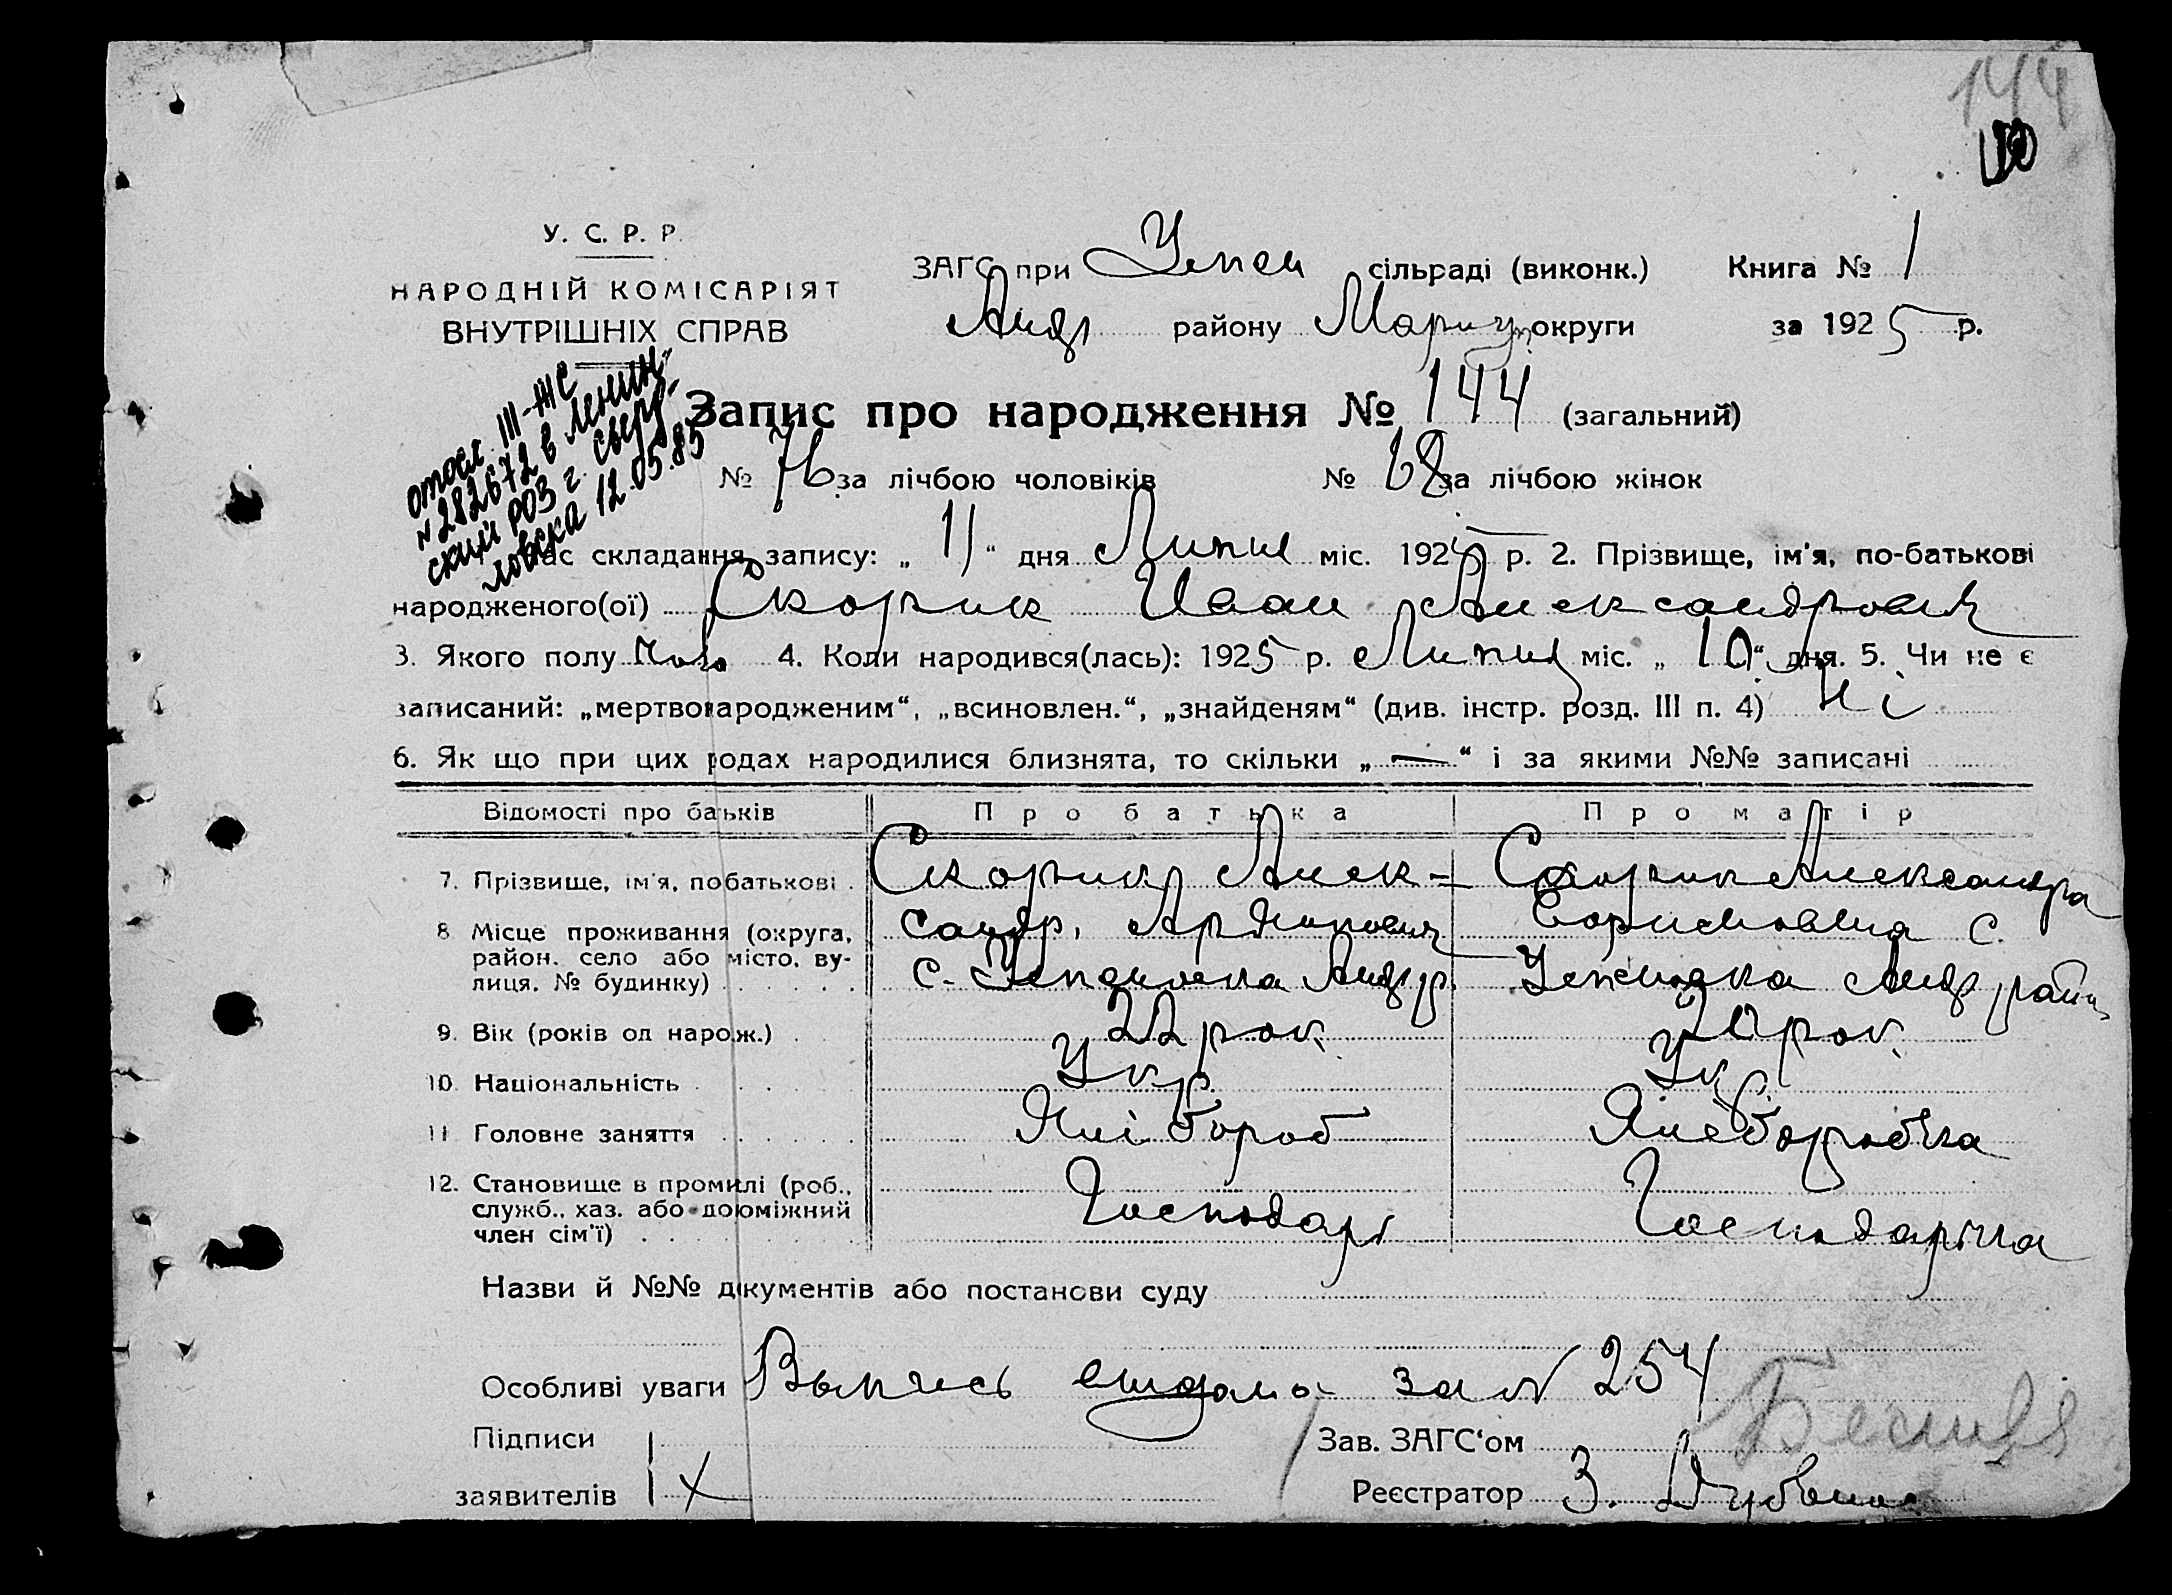 144
У. С. Р. Р.
НАРОДНІЙ КОМІСАРІЯТ
ВНУТРІШНІХ СПРАВ
ЗАГС при сільраді (виконк.) Книга № 1
Анд району Маріуп округи за 1925 р.
отосл. III-ЖС
№ 282672 в Ленин-
ский РОЗ г. Сверд-
ловска 12.05.85
Запис про народження № 144 (загальний)
№ 76 за лічбою чоловіків № 68 за лічбою жінок
час складання запису: „ 11 “ дня Липня міс. 1925 р. 2. Прізвище, ім'я, по-батькові
народженого(ої) Скорик Иван Александрович
3. Якого полу Чол 4. Коли народився(лась): 1925 р. Липня міс. „ 10 “ дня. 5. Чи не є
записаний: „мертвонародженим“, „всиновлен.“, „знайденям“ (див. інстр. розд. III п. 4) Ні
6. Як що при цих родах народилися близнята, то скільки „ — “ і за якими №№ записані
Відомості про батьків Про батька Про матір
7. Прізвище, ім'я, побатькові . Скорик Алек- Скорик Александра
8 Місце проживання (округа, сандр. Архипович Борисовна с.
район, село або місто, ву- с. Анд р.
лиця, № будинку) . . . . . Анд район
9. Вік (років од нарож.) . 22 рок. 20 рок.
10. Національність . . . . Укр. Укр.
11 Головне заняття . . . . . Хлібороб Хлеборобка
12. Становище в промислі (роб., Господарь Господарка
служб., хаз. або допоміжний
член сім'ї) . . . . . . .
Назви й №№ документів або постанови суду
Особливі уваги Выпись выдана за № 254
Підписи Зав. ЗАГС‘ом
заявителів X Реєстратор З.